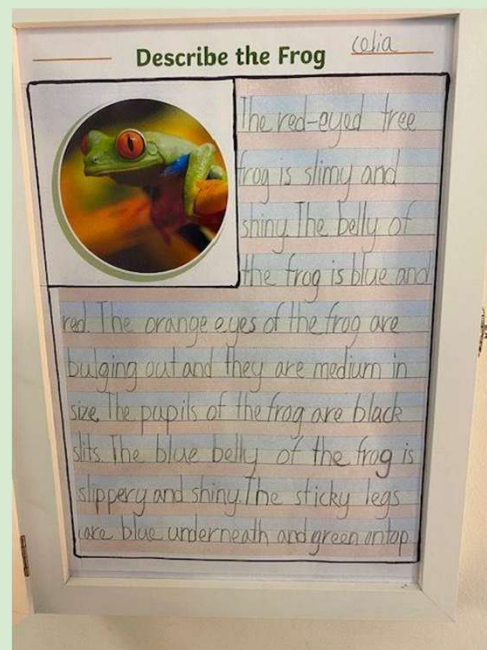 celia
Describe the Frog
The red-eyed tree
frog is slimy and
shiny. The belly of
the frog is blue and
red. The orange eyes of the frog are
bulging out and they are medium in
size. The pupils of the frog are black
slits. The blue belly of the frog is
slippery and shiny. The sticky legs
are blue underneath and green on top.